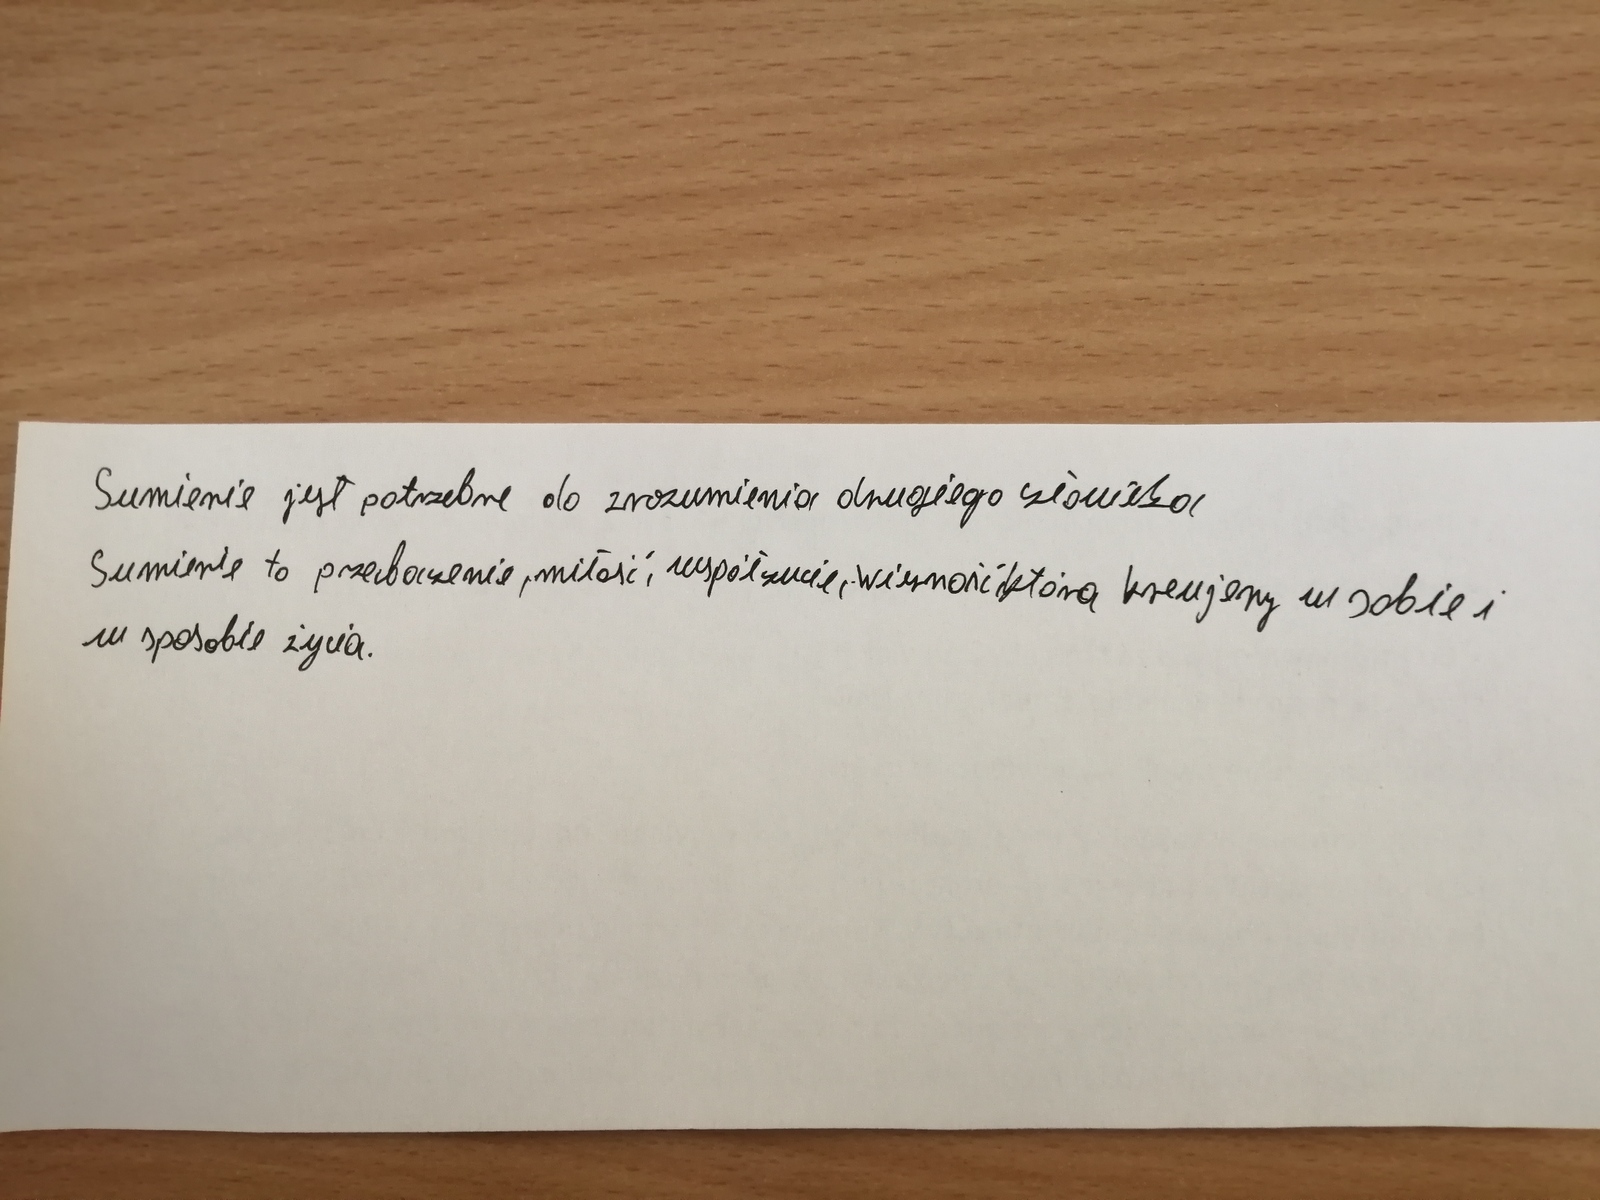 Sumienie jest potrzebne do zrozumienia drugiego człowieka
Sumienie to przebaczenie, miłość, współczucie, wierność którą kreujemy w sobie i
w sposobie życia.